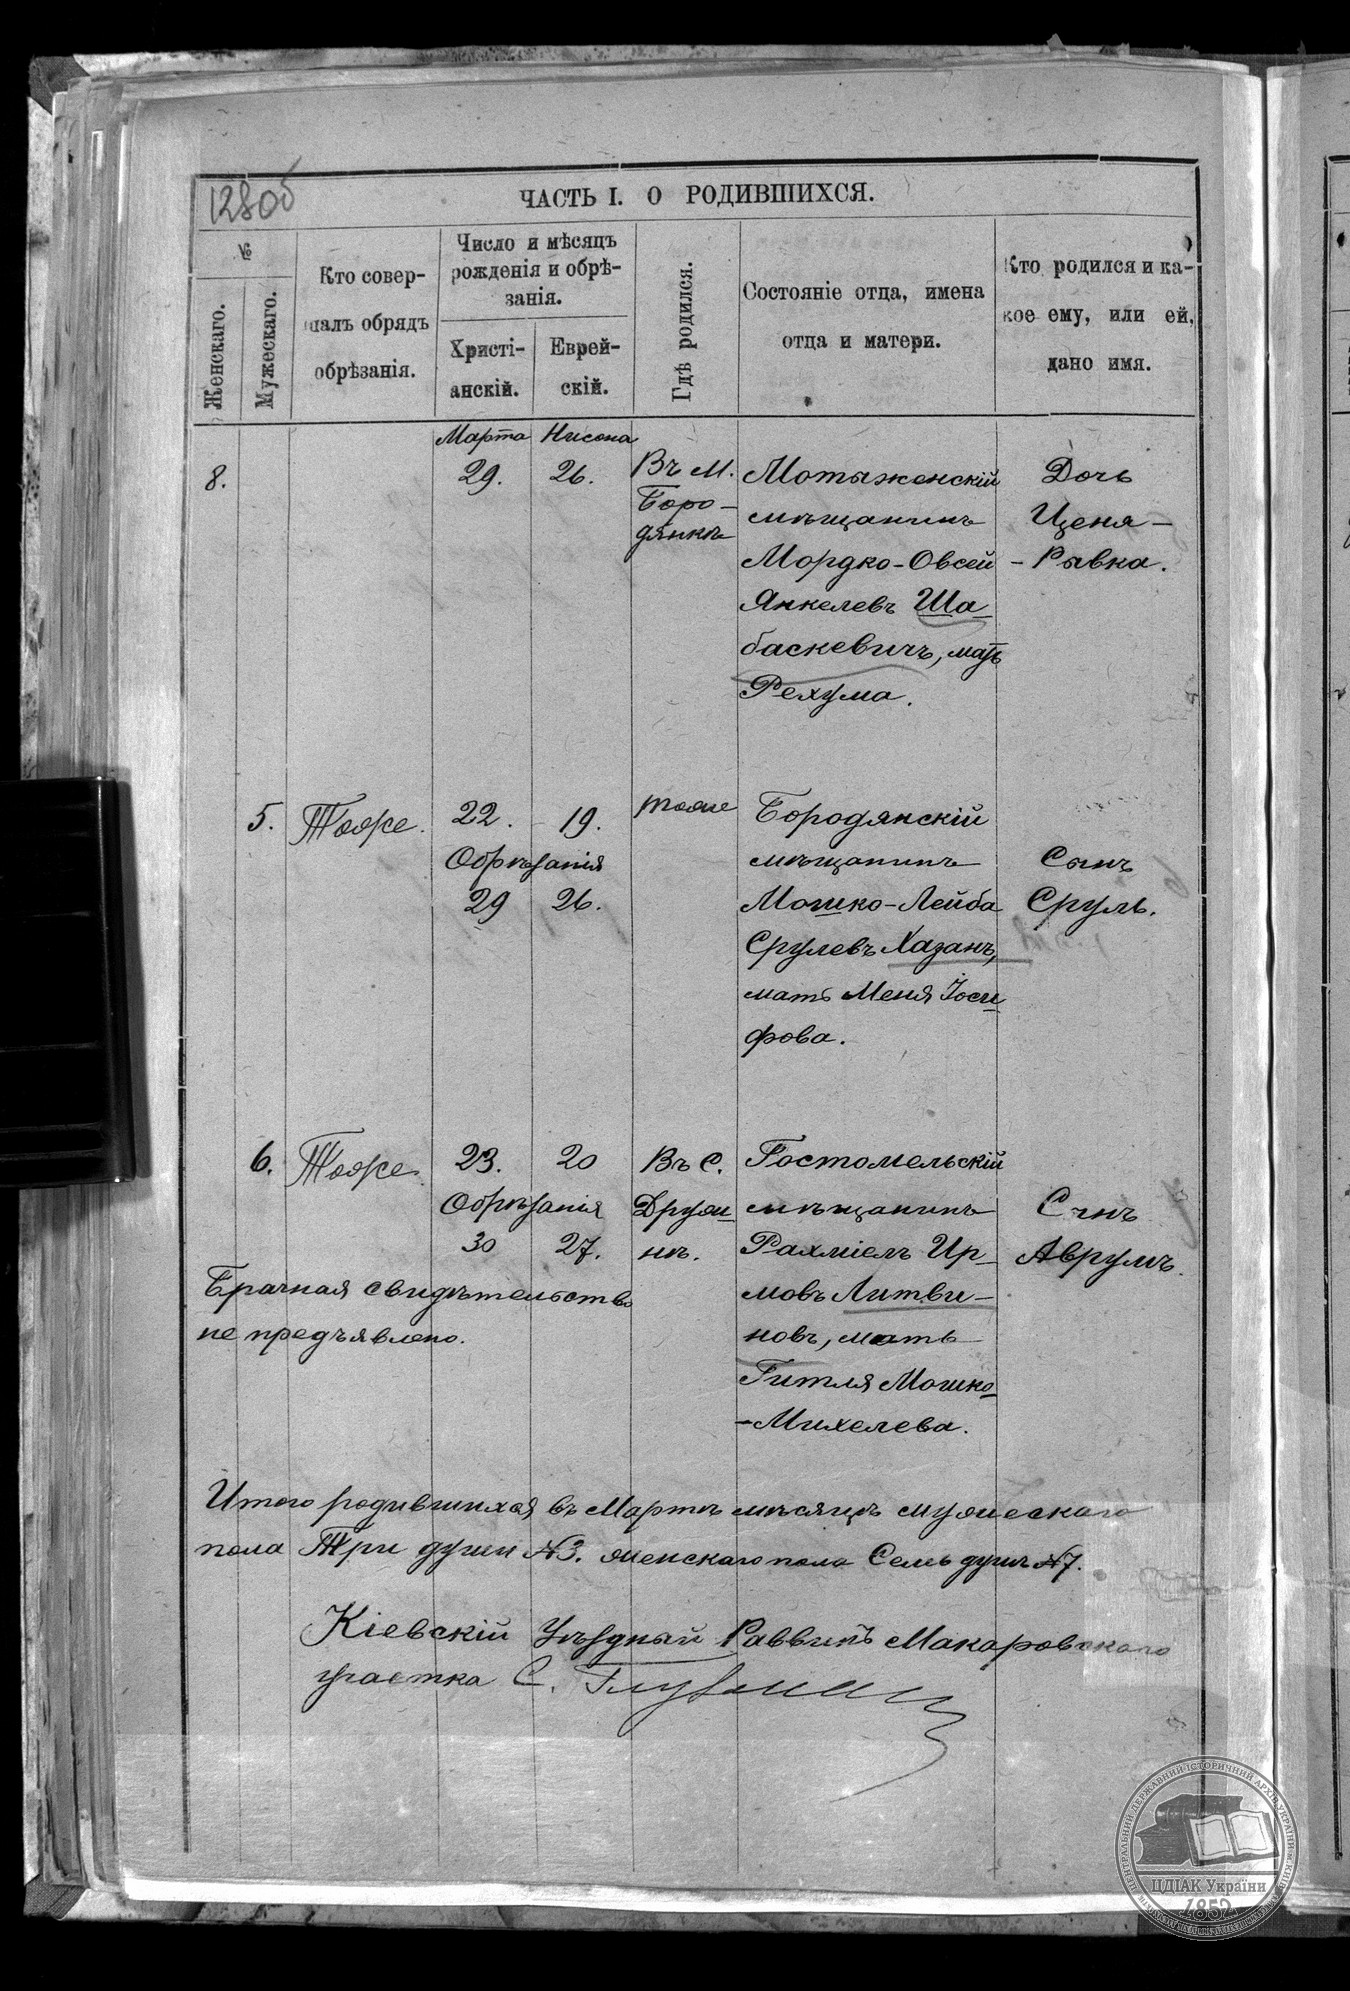 128об
ЧАСТЬ I. О РОДИВШИХСЯ.
№
Женскаго.
Мужескаго.
Кто совер-
шалъ обрядъ
обрѣзанія.
Число и мѣсяцъ
рожденія и обрѣ-
занія.
Христі-
анскій.
Еврей-
скій.
Гдѣ родился.
Состояніе отца, имена
отца и матери.
Кто родился и ка-
кое ему, или ей,
дано имя.
Марта Нисона
8.
29. 26.
Въ м.
Боро-
дянкѣ
Мотыженскій
мѣщанинъ
Мордко-Овсей
Янкелевъ Ша-
баскевичъ, мать
Рехума.
Дочь
Ценя-
-Рывка.
5. Тоже. 22. 19. тоже
Обрѣзанія
29 26.
Бородянскій
мѣщанинъ
Мошко-Лейба
Срулевъ Хазанъ,
мать Меня Іоси-
фова.
Сынъ
Сруль.
6. Тоже. 23. 20
Обрѣзанія
30 27.
Въ с.
Друж-
нѣ.
Гостомельскій
мѣщанинъ
Рахміель Ир-
мовъ Литви-
новъ, мать
Гитля Мошко-
-Михелева.
Сынъ
Аврумъ.
Брачная свидѣтельство
не предъявлено.
Итого родившихся въ Мартѣ мѣсяцѣ мужескаго
пола Три души №3. женскаго пола Семь душъ №7.
Кіевскій Уѣздный Раввинъ Макаровскаго
участка С.
ЦЕНТРАЛЬНИЙ ДЕРЖАВНИЙ ІСТОРИЧНИЙ АРХІВ УКРАЇНИ, м. КИЇВ
ЦДІАК України
1852